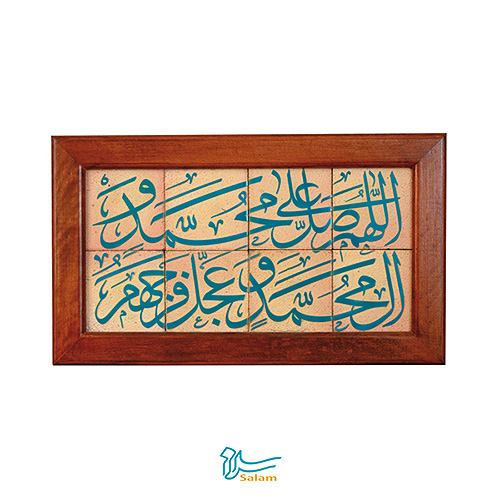 اللهم صل علی محمد و
ال محمد و عجل فرجهم
سلام
Salam